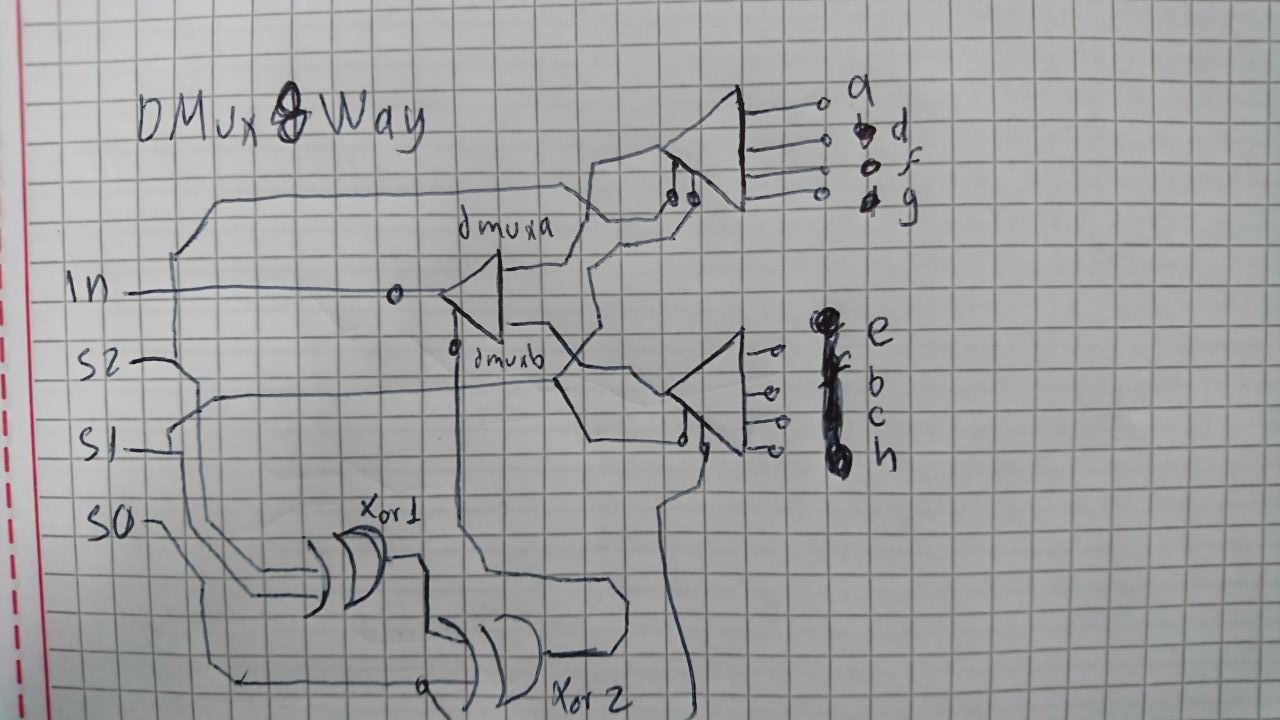 DMux 8 Way
a
d
f
g
dmuxa
In
dmuxb
e
S2
b
c
S1
h
Xor1
S0
Xor2